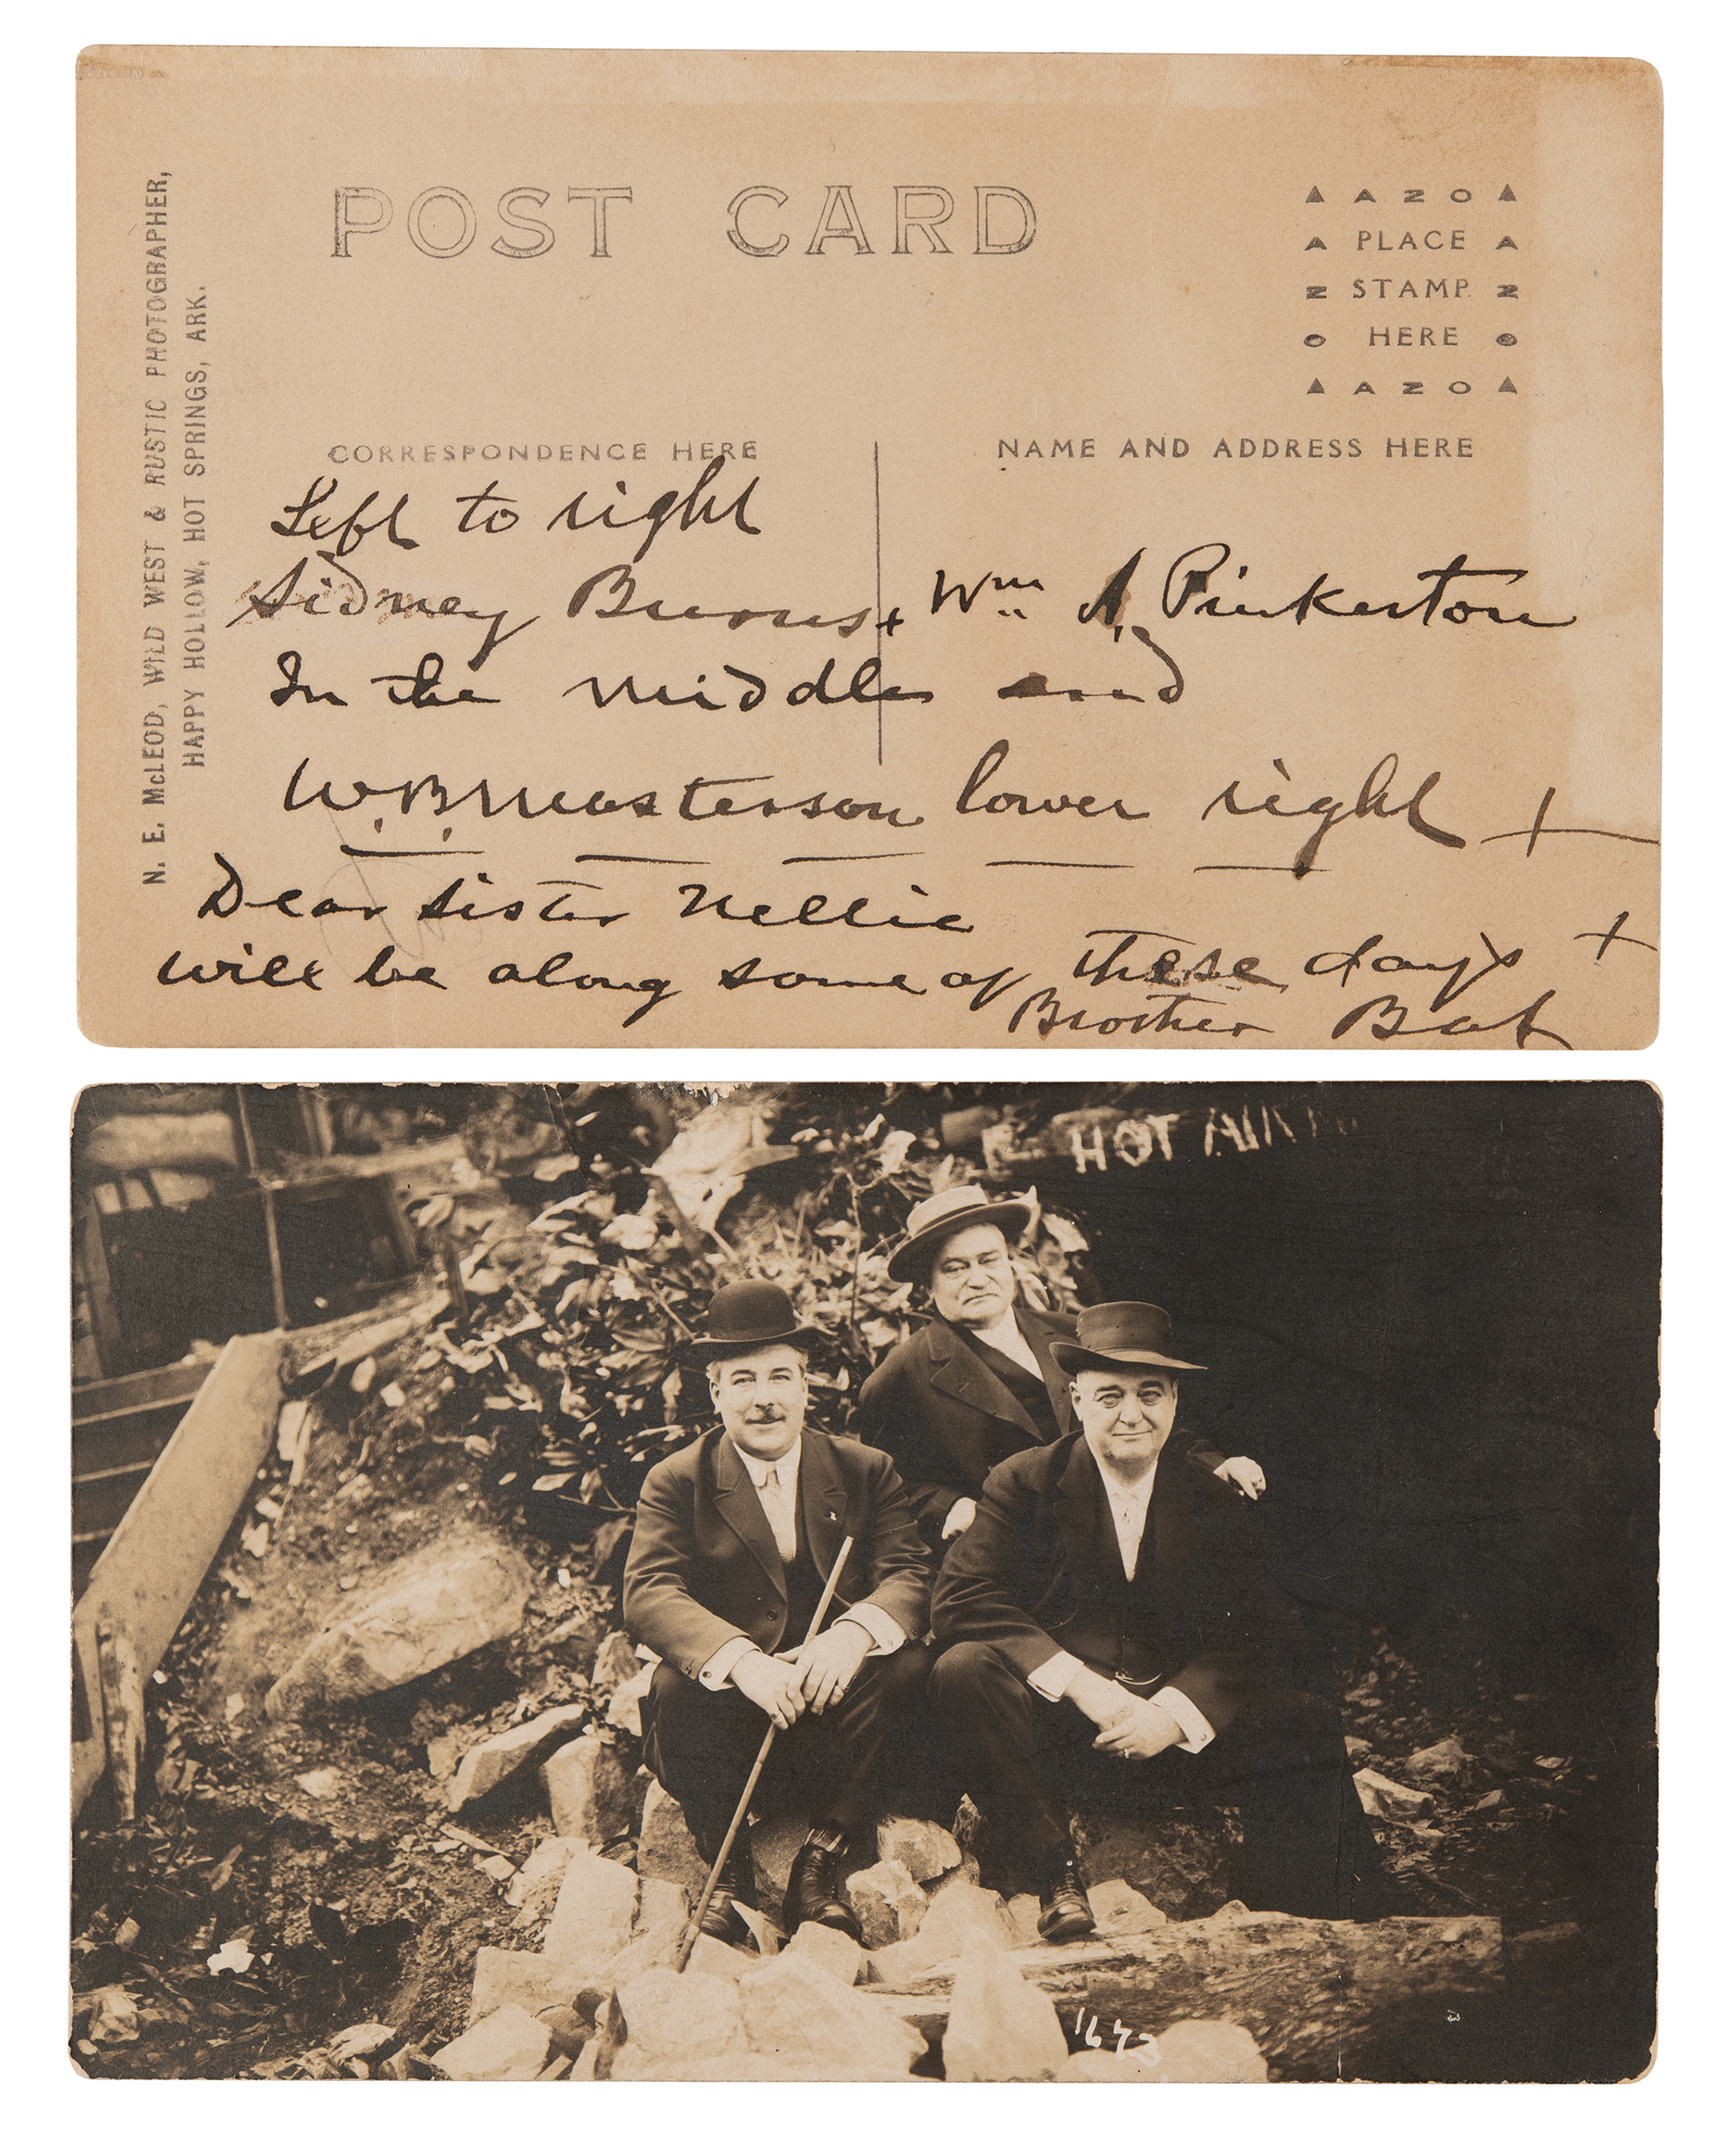 N. E. McLEOD, WILD WEST & RUSTIC PHOTOGRAPHER,
HAPPY HOLLOW, HOT SPRINGS, ARK.
POST CARD
▲ A Z O ▲
A PLACE A
Z STAMP Z
O HERE O
▲ A Z O ▲
CORRESPONDENCE HERE
NAME AND ADDRESS HERE
Left to right
Sidney Burns + Wm A. Pinkerton
In the middle and
W.B. Masterson lower right +
Dear sister Nellie
will be along some of these days +
Brother Bat
HOT AIR